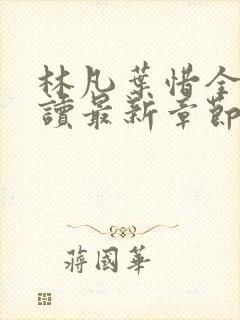 林凡葉惜全
讀最新章節
蔣國華